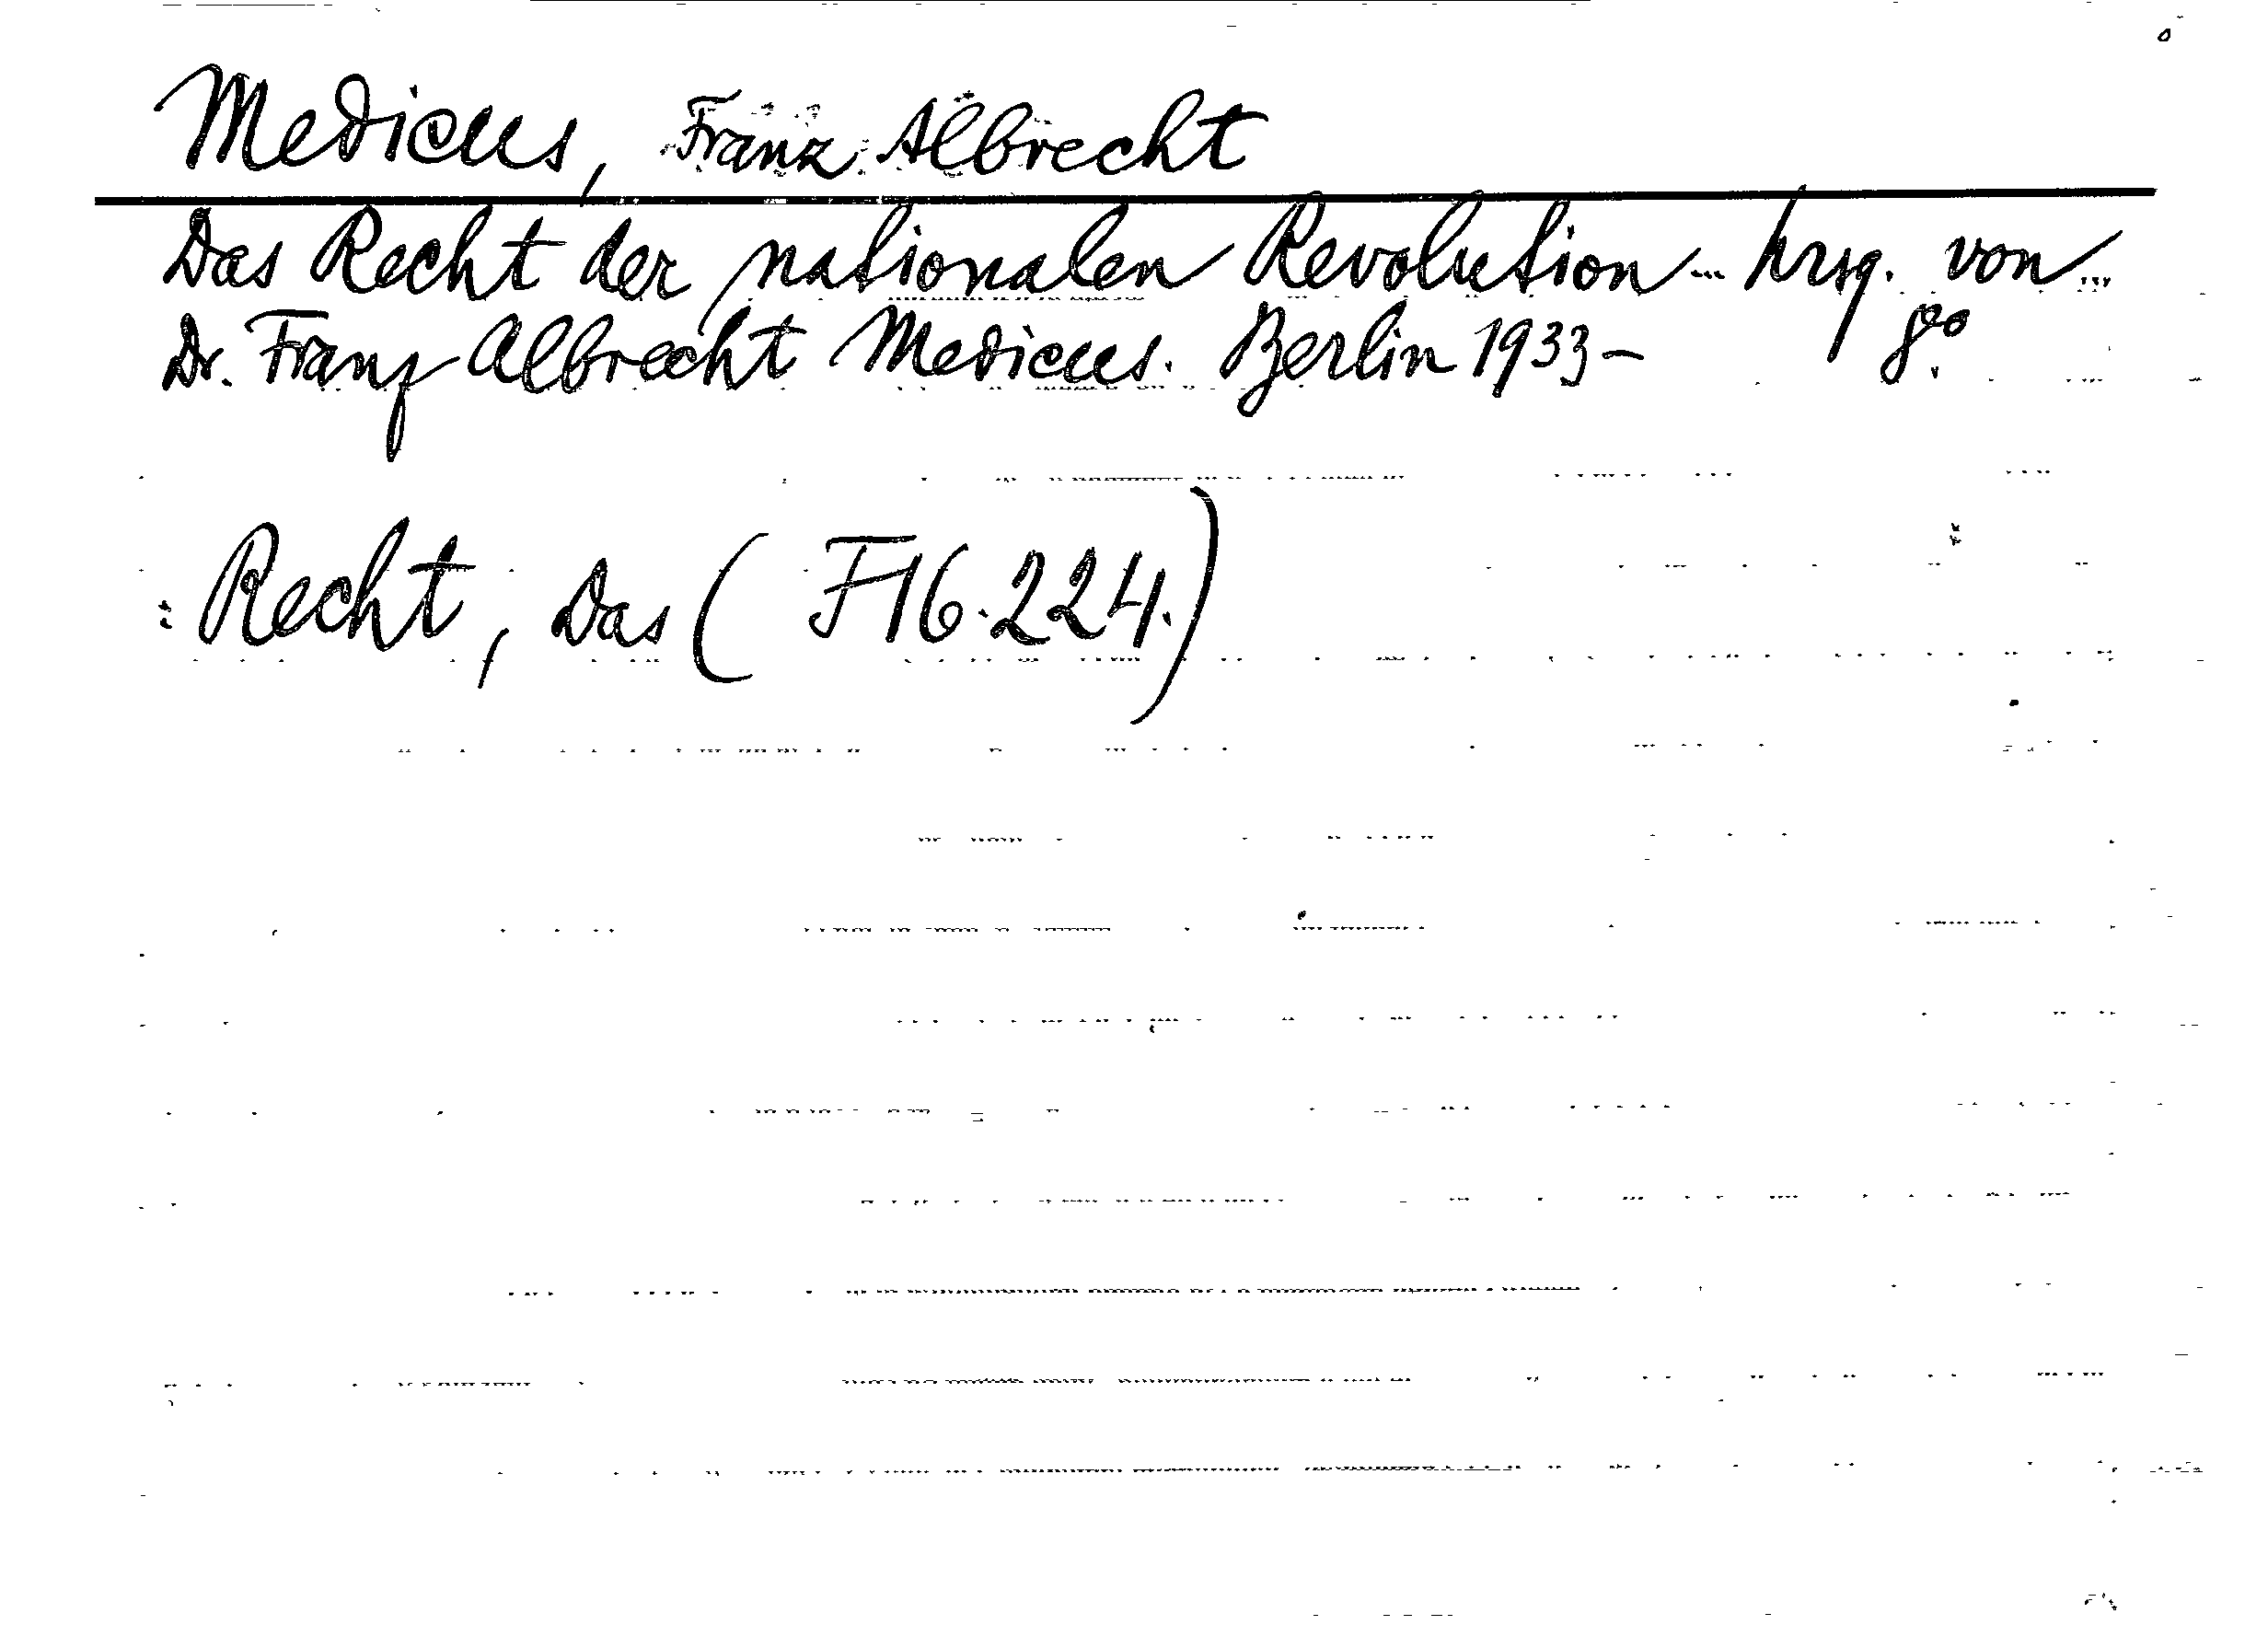 Medicus, Franz Albrecht
Das Recht der nationalen Revolution... hrsg. von...
Dr. Franz Albrecht Medicus. Berlin 1933- 8o.
: Recht, Das ( F16.224.)